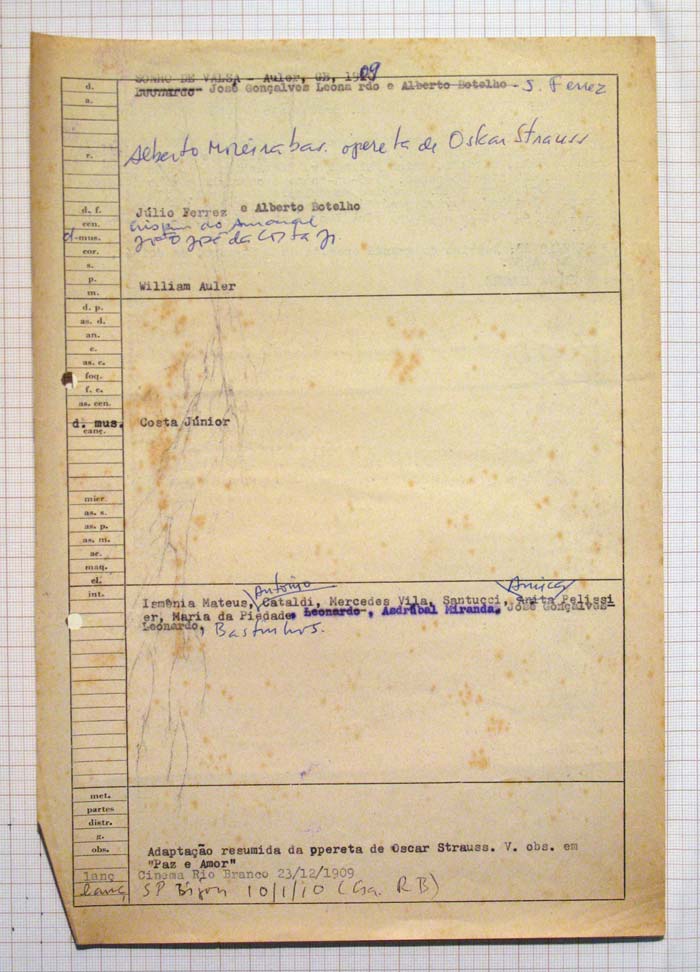 SONHO DE VALSA - Auler, GB, 1909
d. José Gonçalves Leona rdo e Alberto Botelho - J. Ferrez
a.
r. Alberto Moreira bas. opereta de Oskar Strauss
d. f. Júlio Ferrez e Alberto Botelho
cen. Crispim do Amaral
d-mus. João José da Costa Jr.
cor.
s.
p. William Auler
m.
d. p.
as. d.
an.
c.
as. c.
foq.
f. c.
as. cen.
d. mus. Costa Júnior
canç.
mier
as. s.
as. p.
as. m.
ac.
maq.
el.
Antonio Amica
int. Ismênia Mateus, Cataldi, Mercedes Vila, Santucci, Anita Pelissi
er, Maria da Piedade, Leonardo, Asdrúbal Miranda, José Gonçalves
Leonardo, Bastinhos.
met.
partes
distr.
g.
obs. Adaptação resumida da ppereta de Oscar Strauss. V. obs. em
"Paz e Amor"
lanç Cinema Rio Branco 23/12/1909
lanç SP Bijou 10/1/10 (Ga. RB)